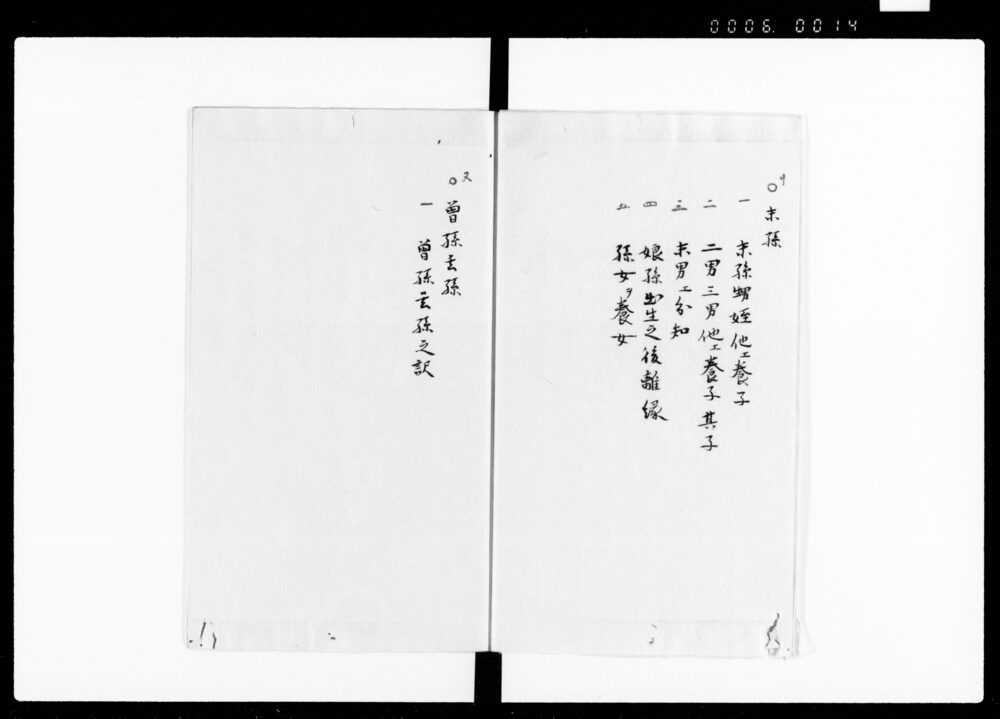 0006. 0014
○末孫
一 末孫甥姪他エ養子
二 二男三男他エ養子其子
三 末男エ分知
四 娘孫出生之後離縁
五 孫女養女
○又曽孫玄孫
一 曽孫玄孫之訳